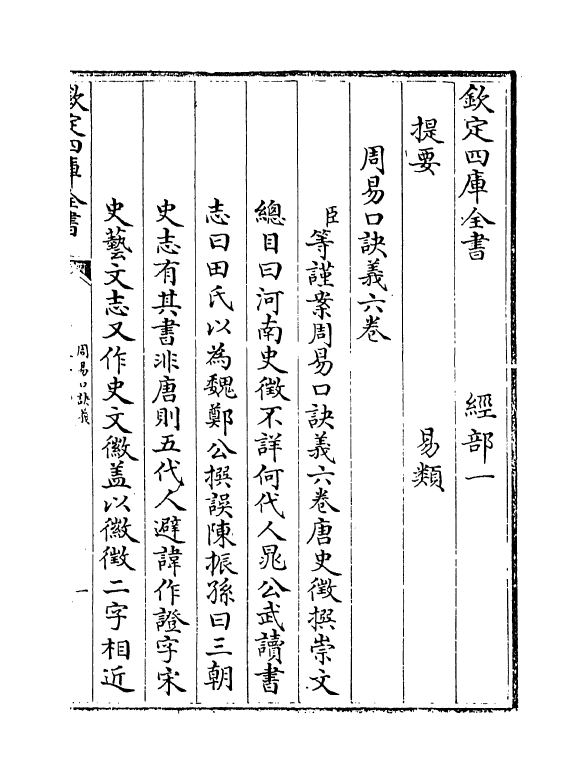 欽定四庫全書　經部一
提要　易類
周易口訣義六卷
臣等謹案周易口訣義六卷唐史徵撰崇文
總目曰河南史徵不詳何代人晁公武讀書
志曰田氏以為魏鄭公撰誤陳振孫曰三朝
史志有其書非唐則五代人避諱作證字宋
史藝文志又作史文徽盖以徽徵二字相近
欽定四庫全書
周易口訣義
一